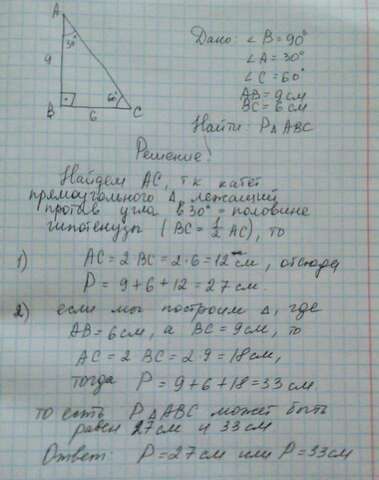 A
30°
9
60°
B
6
C
Дано: ∠B=90°
∠A=30°
∠C=60°
AB=9см
BC=6см
Найти: P△ABC
Решение:
Найдем AC, т.к катет
прямоугольного △, лежащий
против угла в 30° = половине
гипотенузы (BC=½ AC), то
1) AC=2BC=2·6=12см, отсюда
P=9+6+12=27см.
2) если мы построим △, где
AB=6см, а BC=9см, то
AC=2BC=2·9=18см,
тогда P=9+6+18=33см
то есть P△ABC может быть
равен 27см и 33см
Ответ: P=27см или P=33см